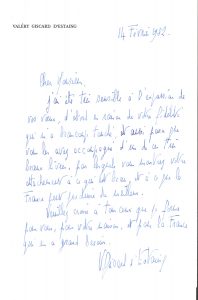 VALÉRY GISCARD D'ESTAING
14 Février 1982.
Cher Monsieur,
j'ai été très sensible à l'expression de
vos vœux, d'abord en raison de votre fidélité
qui m'a beaucoup touché, et aussi parce que
vous les avez accompagnés d'un de ces très
beaux livres, par lesquels vous manifestez votre
attachement à ce qui est beau, et à ce que la
France peut produire de meilleur.
Veuillez croire à tous ceux que je forme
pour vous, pour votre maison, et pour la France
qui en a grand besoin.
V Giscard d'Estaing